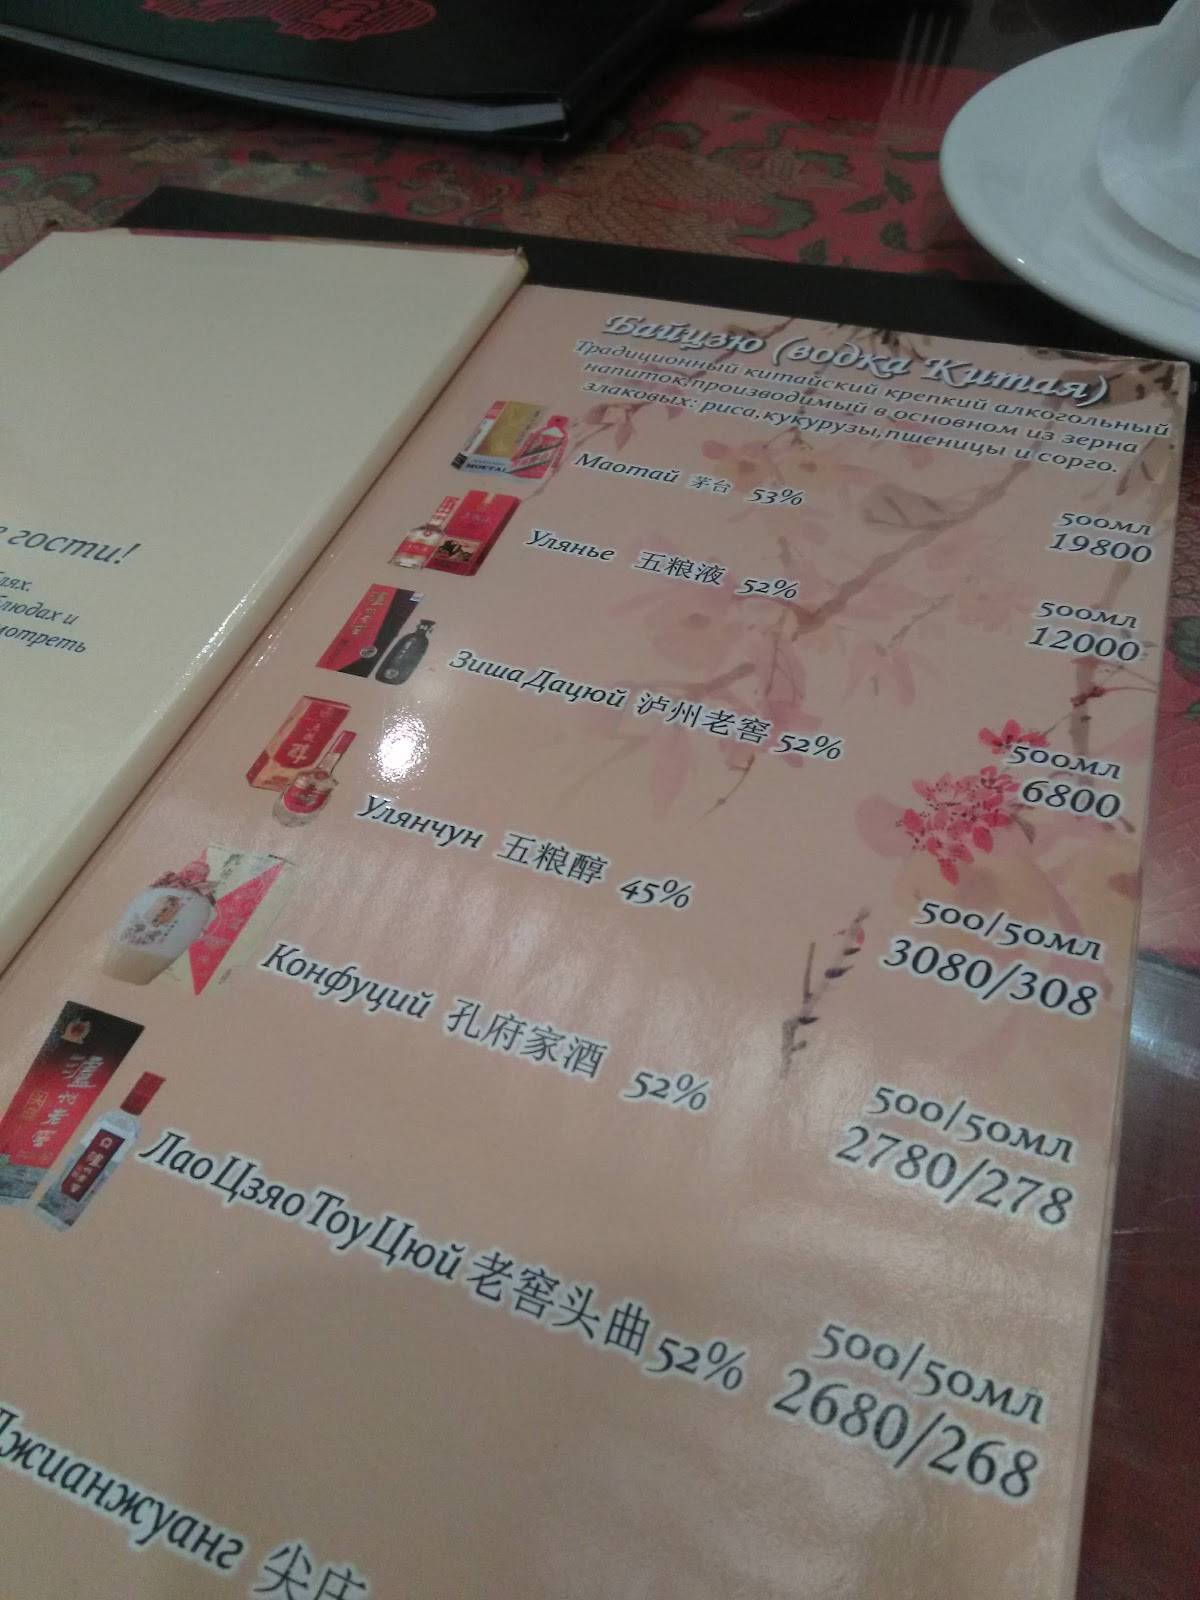 гости!
блюдах и
смотреть
Байцзю (водка Китая)
Традиционный китайский крепкий алкогольный
напиток,производимый в основном из зерна
злаковых: риса,кукурузы,пшеницы и сорго.
MOUTAI
Маотай 茅台 53%
500мл
19800
Улянье 五粮液 52%
500мл
12000
ЗишаДацюй 泸州老窖 52%
500мл
6800
Улянчун 五粮醇 45%
500/50мл
3080/308
Конфуций 孔府家酒 52%
500/50мл
2780/278
ЛаоЦзяоТоуЦюй 老窖头曲 52%
500/50мл
2680/268
Джианжуанг 尖庄